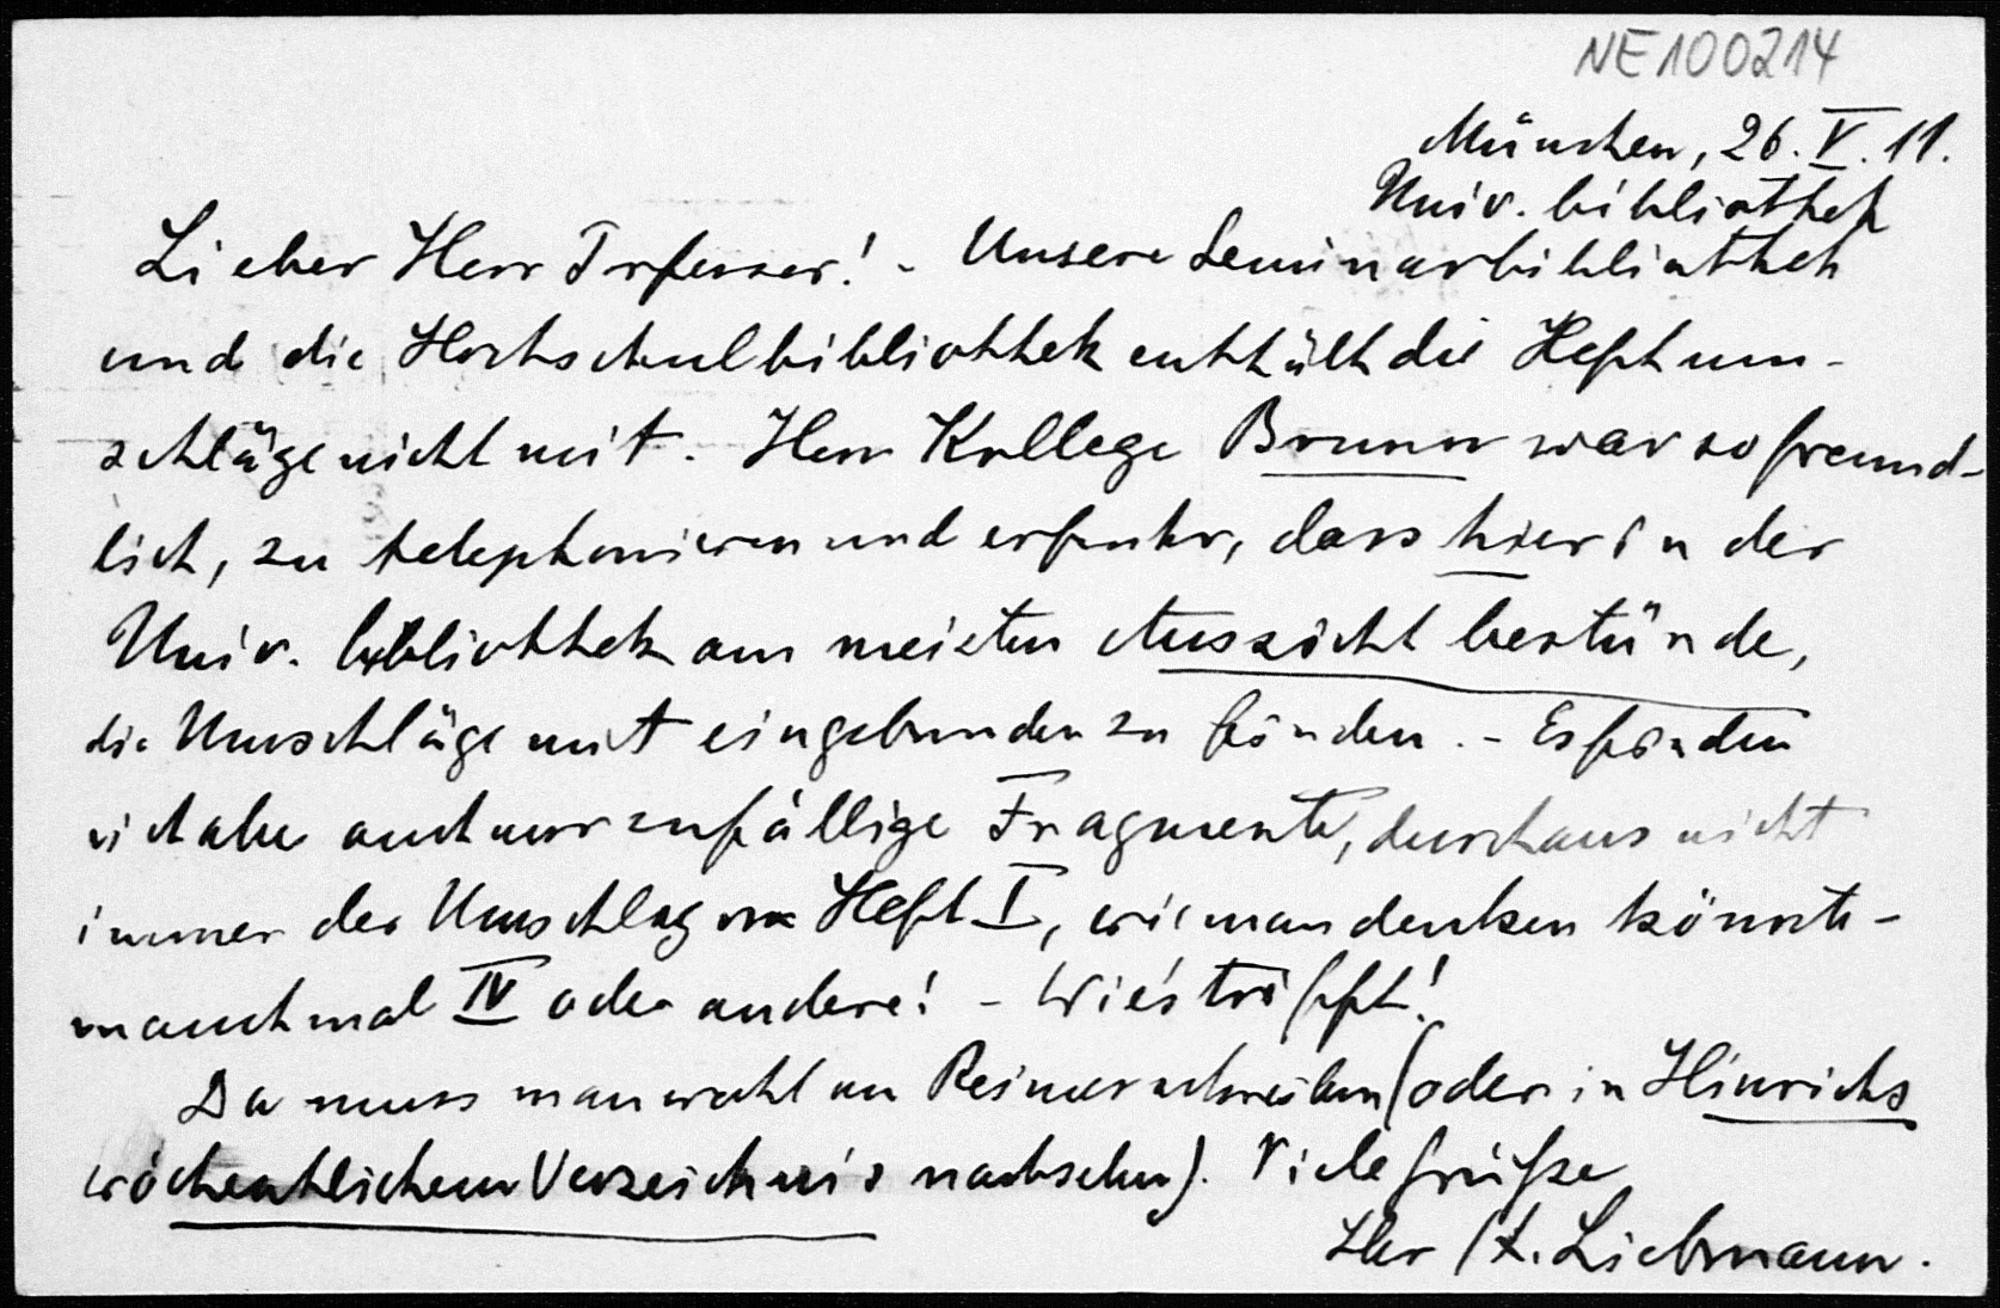 NE100214
München, 26. V. 11.
Univ. bibliothek
Lieber Herr Professor! - Unsere Seminarbibliothek
und die Hochschulbibliothek enthält die Heftum-
schläge nicht mit. Herr Kollege Brunn war so freund-
lich, zu telephonieren und erfuhr, dass hier in der
Univ. bibliothek am meisten Aussicht bestünde,
die Umschläge mit eingebunden zu finden. - Es finden
sich aber auch nur zufällige Fragmente, durchaus nicht
immer der Umschlag von Heft I, wie man denken könnte -
manchmal IV oder andere! - Wie's trifft!
Da muss man wohl an Reimer schreiben (oder in Hinrichs
wöchentlichem Verzeichnis nachsehen). Viele Grüße
Ihr H. Liebmann.